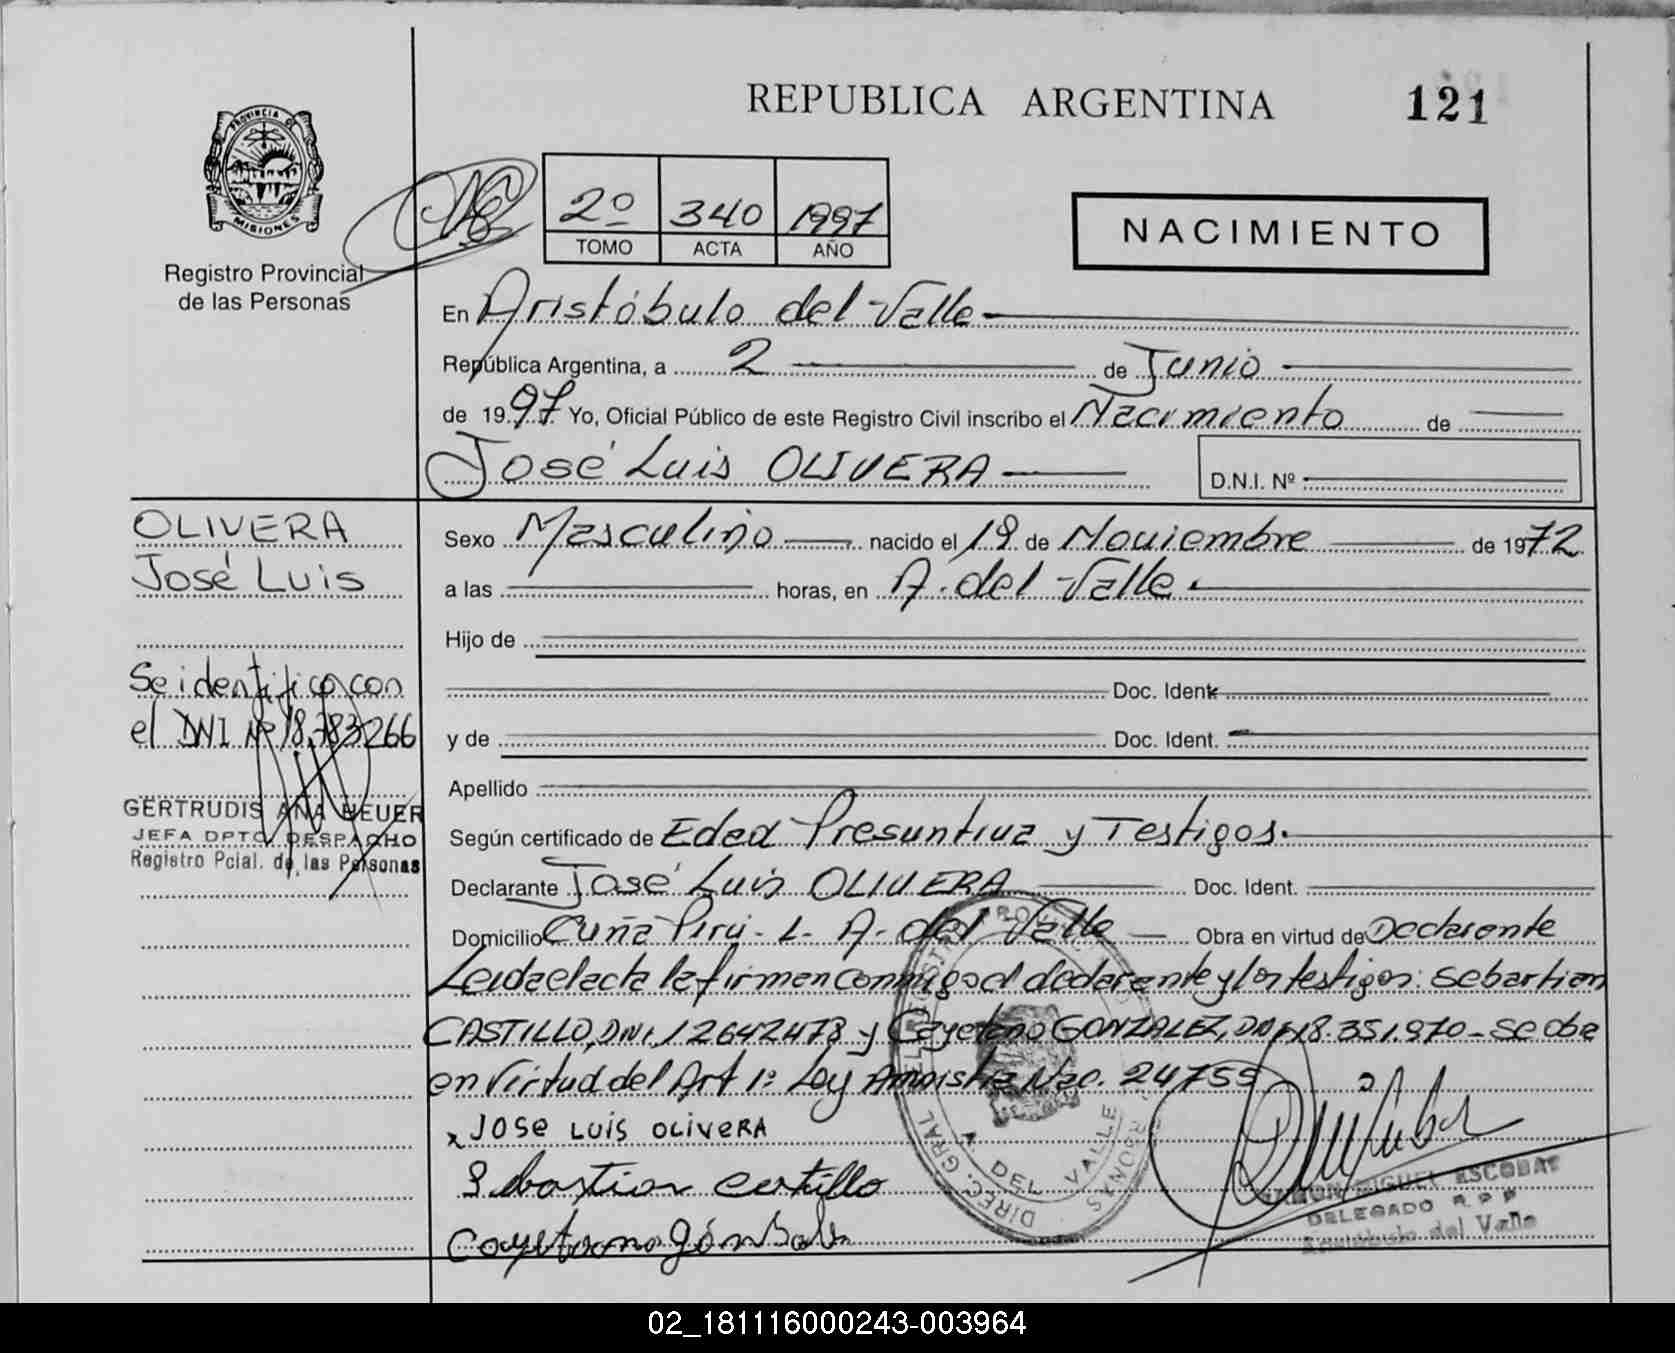 REPUBLICA ARGENTINA
121
PROVINCIA DE
MISIONES
Registro Provincial
de las Personas
2º 340 1997
TOMO ACTA AÑO
NACIMIENTO
En Aristóbulo del Valle
República Argentina, a 2 de Junio
de 1997 Yo, Oficial Público de este Registro Civil inscribo el Nacimiento de
José Luis OLIVERA D.N.I. Nº
OLIVERA
José Luis
Se identificó con
el DNI Nº 18.783266
GERTRUDIS ANA HEUER
JEFA DPTO DESPACHO
Registro Pcial. de las Personas
Sexo Masculino nacido el 19 de Noviembre de 1972
a las horas, en A. del Valle.
Hijo de
Doc. Ident.
y de Doc. Ident.
Apellido
Según certificado de Edad Presuntiva y Testigos.
Declarante José Luis OLIVERA Doc. Ident.
Domicilio Cuña Pirú - L. A. del Valle Obra en virtud de Declarante
Leida el acta la firman conmigo el declarante y los testigos: Sebastian
CASTILLO, DNI. 12642478 y Cayetano GONZALEZ, DNI 18.351.970 - Se obra
en Virtud del Art 1º Ley Amnistia Nac. 24755
x JOSe LUiS OLiVeRA
Sebastian Castillo
Cayetano
DIREC. GRAL DEL REGISTRO
A. DEL VALLE
RAMON MIGUEL ESCOBAR
DELEGADO R.P.P
Aristóbulo del Valle
02_181116000243-003964